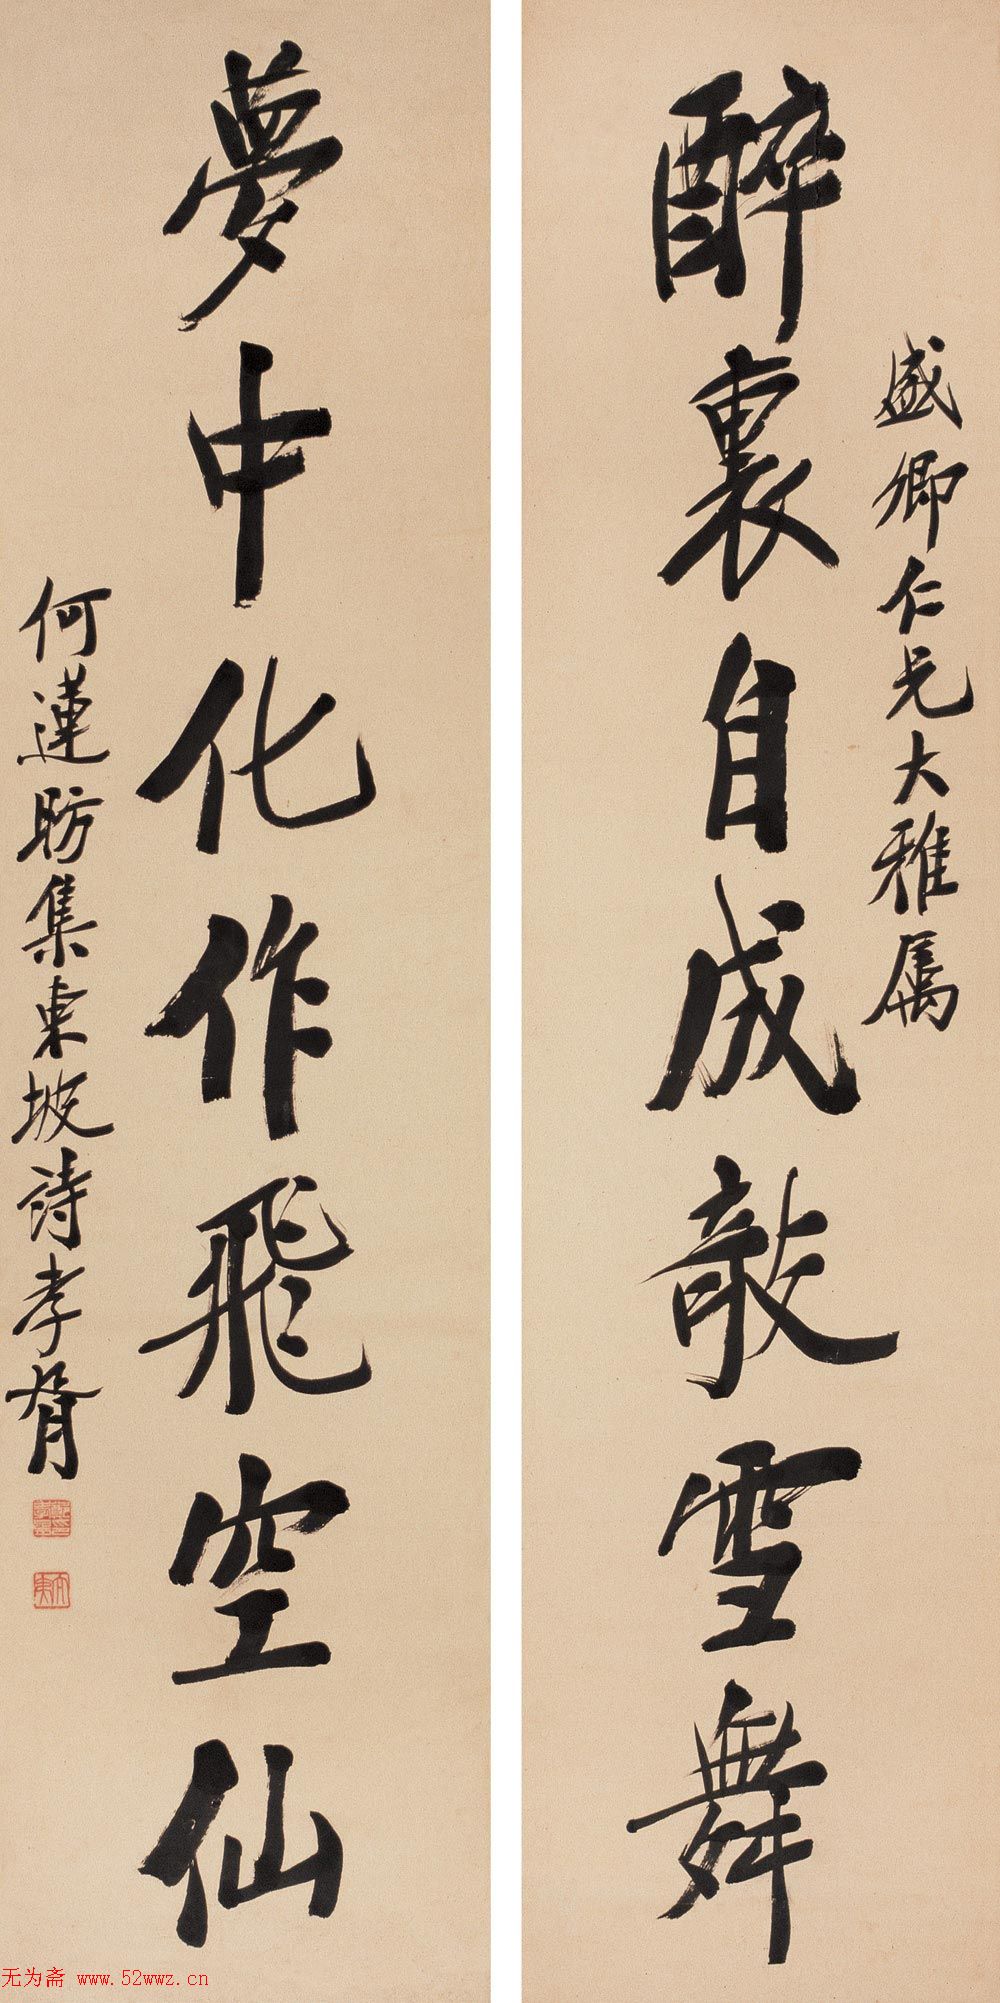 盛卿仁兄大雅属
醉裏自成敲雪舞
夢中化作飛空仙
何蓮昉集東坡詩孝胥
无为斋 www.52wwz.cn